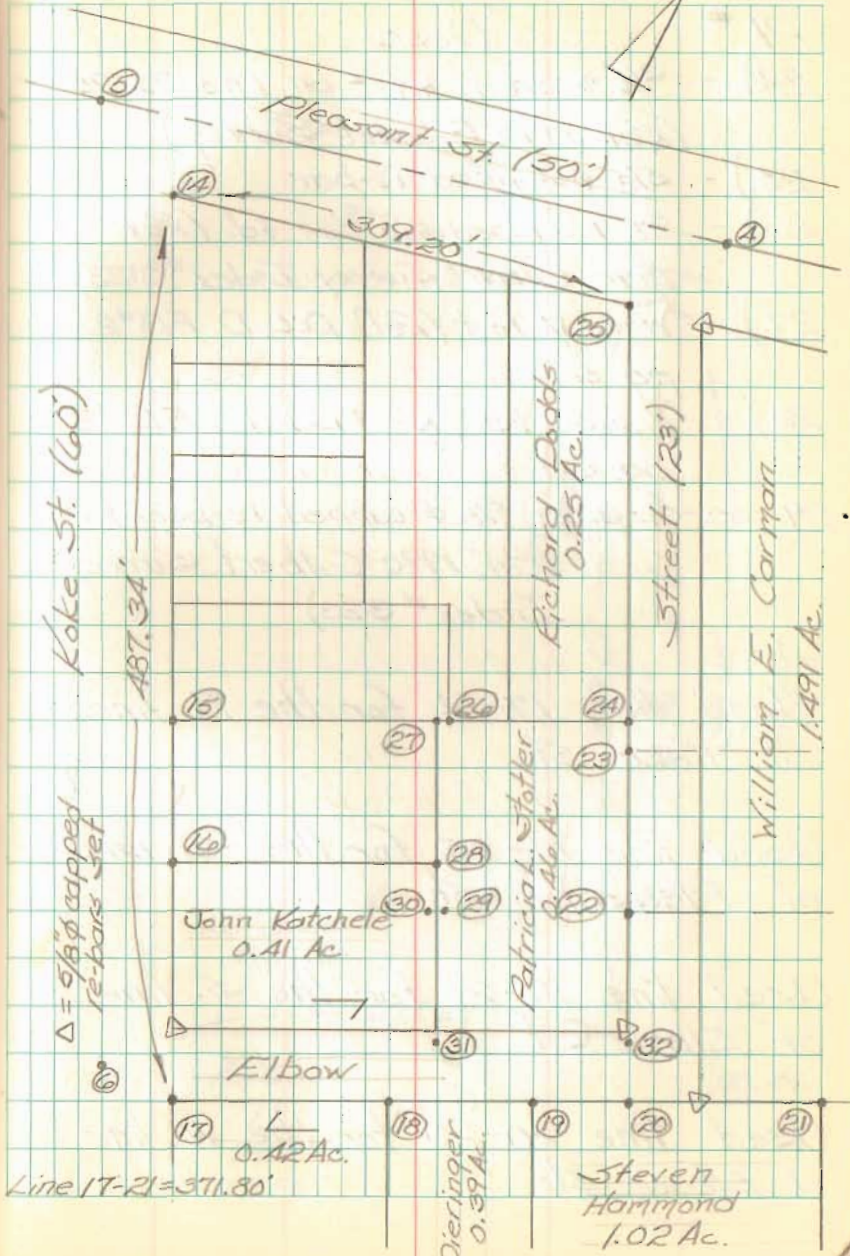 5
Pleasant St. (50')
14
4
309.20'
25
Koke St. (60')
487.34'
Richard Dodds
0.25 Ac.
Street (23')
William E. Carman
1.491 Ac.
15
26
24
27
23
Δ = 5/8"φ capped
re-bars set
16
28
Patricia L. Stotler
0.46 Ac.
30
29
22
John Katchele
0.41 Ac
31
32
6
Elbow
17
18
19
20
21
0.42 Ac.
Line 17-21=371.80'
Dieringer
0.39 Ac.
Steven
Hammond
1.02 Ac.